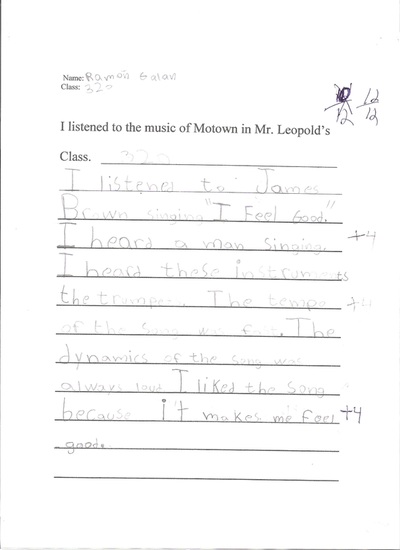 Name: Ramon Galan
Class: 320
12
12 12
I listened to the music of Motown in Mr. Leopold's
Class. 320
I listened to James
Brown singing "I Feel Good."
I heard a man singing. +4
I heard these instruments
the trumpet. The tempo +4
of the song was fast. The
dynamics of the song was
always loud I liked the song
because it makes me feel +4
good.